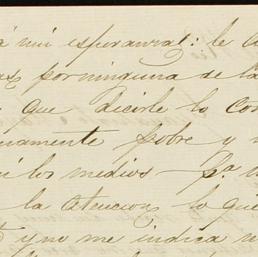 mi esperanza: le
por ninguna de la
que decirle lo con
mente pobre y
los medios - pa
la atencion, lo que
y no me indica